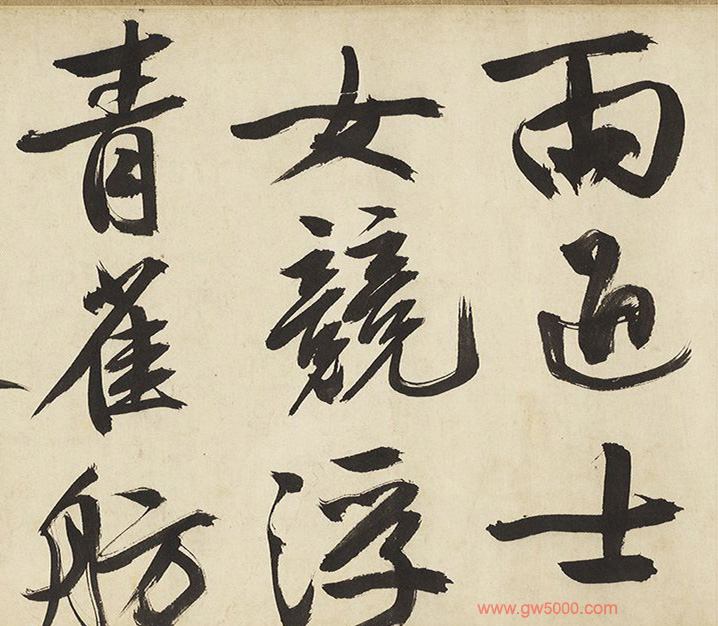 雨過士
女競浮
青雀舫
www.gw5000.com